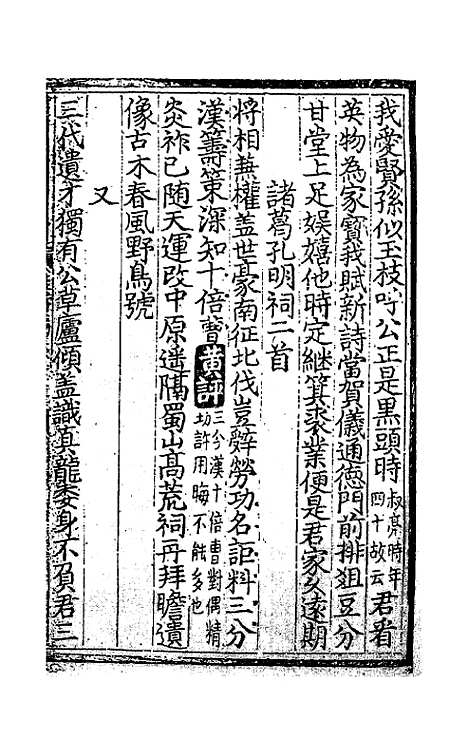 我愛賢孫似玉枝呼公正是黒頭時叔亮時年四十故云君看
英物為家寳我賦新詩當賀儀通徳門前排爼豆分
甘堂上足娱嬉他時定継箕裘業便是君家久逺期
諸葛孔明祠二首
将相兼權盖世豪南征北伐豈辭勞功名詎料三分
漢籌策深知十倍曹黄評三分漢十倍曹對偶精切許用晦不能多也
炎祚已随天運改中原遥隔蜀山髙荒祠再拜瞻遺
像古木春風野鳥號
又
三代遺才獨有公草廬傾盖識真龍委身不負君三